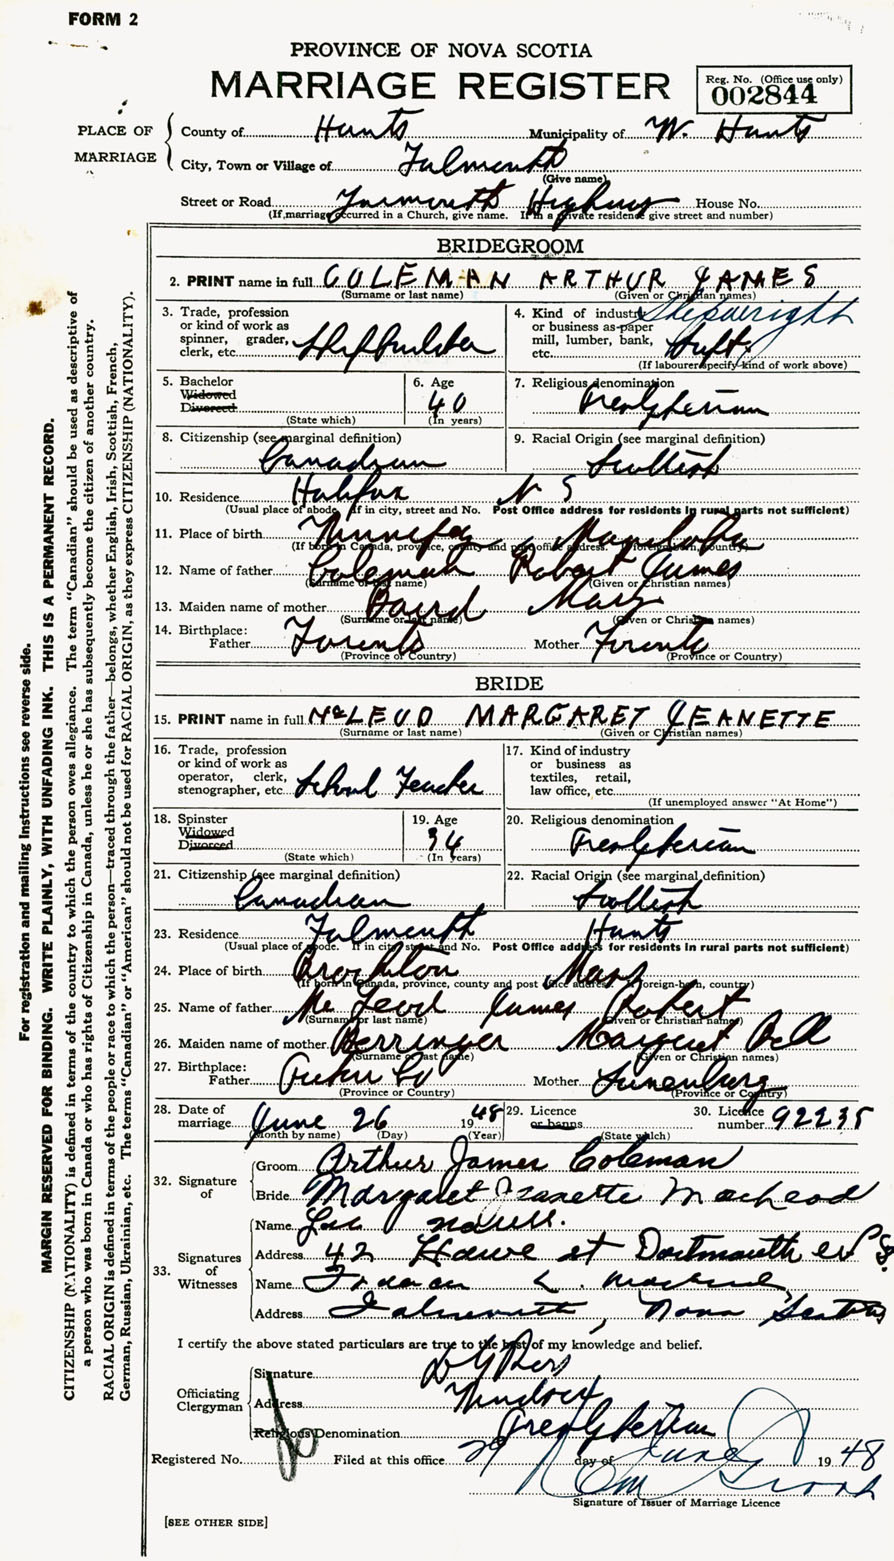 FORM 2
PROVINCE OF NOVA SCOTIA
MARRIAGE REGISTER
Reg. No. (Office use only)
002844
PLACE OF MARRIAGE
County of Hants Municipality of W. Hants
City, Town or Village of Falmouth
(Give name)
Street or Road Falmouth Highway House No.
(If marriage occurred in a Church, give name. If in a private residence give street and number)
BRIDEGROOM
2. PRINT name in full COLEMAN ARTHUR JAMES
(Surname or last name) (Given or Christian names)
3. Trade, profession or kind of work as spinner, grader, clerk, etc. Shipbuilder
4. Kind of industry or business as paper mill, lumber, bank, etc. Shipwright
(If labourer specify kind of work above)
5. Bachelor Widowed Divorced
(State which)
6. Age 40
(In years)
7. Religious denomination Presbyterian
8. Citizenship (see marginal definition) Canadian
9. Racial Origin (see marginal definition) Scottish
10. Residence Halifax N S
(Usual place of abode. If in city, street and No. Post Office address for residents in rural parts not sufficient)
11. Place of birth Winnipeg, Manitoba
(If born in Canada, province, county and post office address. If foreign-born, country)
12. Name of father Coleman Robert James
(Surname or last name) (Given or Christian names)
13. Maiden name of mother Baird Mary
(Surname or last name) (Given or Christian names)
14. Birthplace: Father Toronto Mother Toronto
(Province or Country) (Province or Country)
BRIDE
15. PRINT name in full McLEOD MARGARET JEANETTE
(Surname or last name) (Given or Christian names)
16. Trade, profession or kind of work as operator, clerk, stenographer, etc. School Teacher
17. Kind of industry or business as textiles, retail, law office, etc.
(If unemployed answer "At Home")
18. Spinster Widowed Divorced
(State which)
19. Age 34
(In years)
20. Religious denomination Presbyterian
21. Citizenship (see marginal definition) Canadian
22. Racial Origin (see marginal definition) Scottish
23. Residence Falmouth Hants
(Usual place of abode. If in city street and No. Post Office address for residents in rural parts not sufficient)
24. Place of birth Brockton Mass
(If born in Canada, province, county and post office address. If foreign-born, country)
25. Name of father McLeod James Robert
(Surname or last name) (Given or Christian names)
26. Maiden name of mother Berringer Margaret Bell
(Surname or last name) (Given or Christian names)
27. Birthplace: Father Pictou Co Mother Lunenburg
(Province or Country) (Province or Country)
28. Date of marriage June 26 1948
(Month by name) (Day) (Year)
29. Licence or banns
(State which)
30. Licence number 92235
32. Signature of
Groom Arthur James Coleman
Bride Margaret Jeanette MacLeod
33. Signatures of Witnesses
Name
Address 42 Hawe st Dartmouth N.S.
Name
Address Falmouth, Nova Scotia
I certify the above stated particulars are true to the best of my knowledge and belief.
Officiating Clergyman
Signature D G Ross
Address Windsor
Religious Denomination Presbyterian
Registered No. Filed at this office 29 day of June 1948
Signature of Issuer of Marriage Licence
[SEE OTHER SIDE]
For registration and mailing instructions see reverse side.
MARGIN RESERVED FOR BINDING. WRITE PLAINLY, WITH UNFADING INK. THIS IS A PERMANENT RECORD.
CITIZENSHIP (NATIONALITY) is defined in terms of the country to which the person owes allegiance. The term "Canadian" should be used as descriptive of
a person who was born in Canada or who has rights of Citizenship in Canada, unless he or she has subsequently become the citizen of another country.
RACIAL ORIGIN is defined in terms of the people or race to which the person—traced through the father—belongs, whether English, Irish, Scottish, French,
German, Russian, Ukrainian, etc. The terms "Canadian" or "American" should not be used for RACIAL ORIGIN, as they express CITIZENSHIP (NATIONALITY).